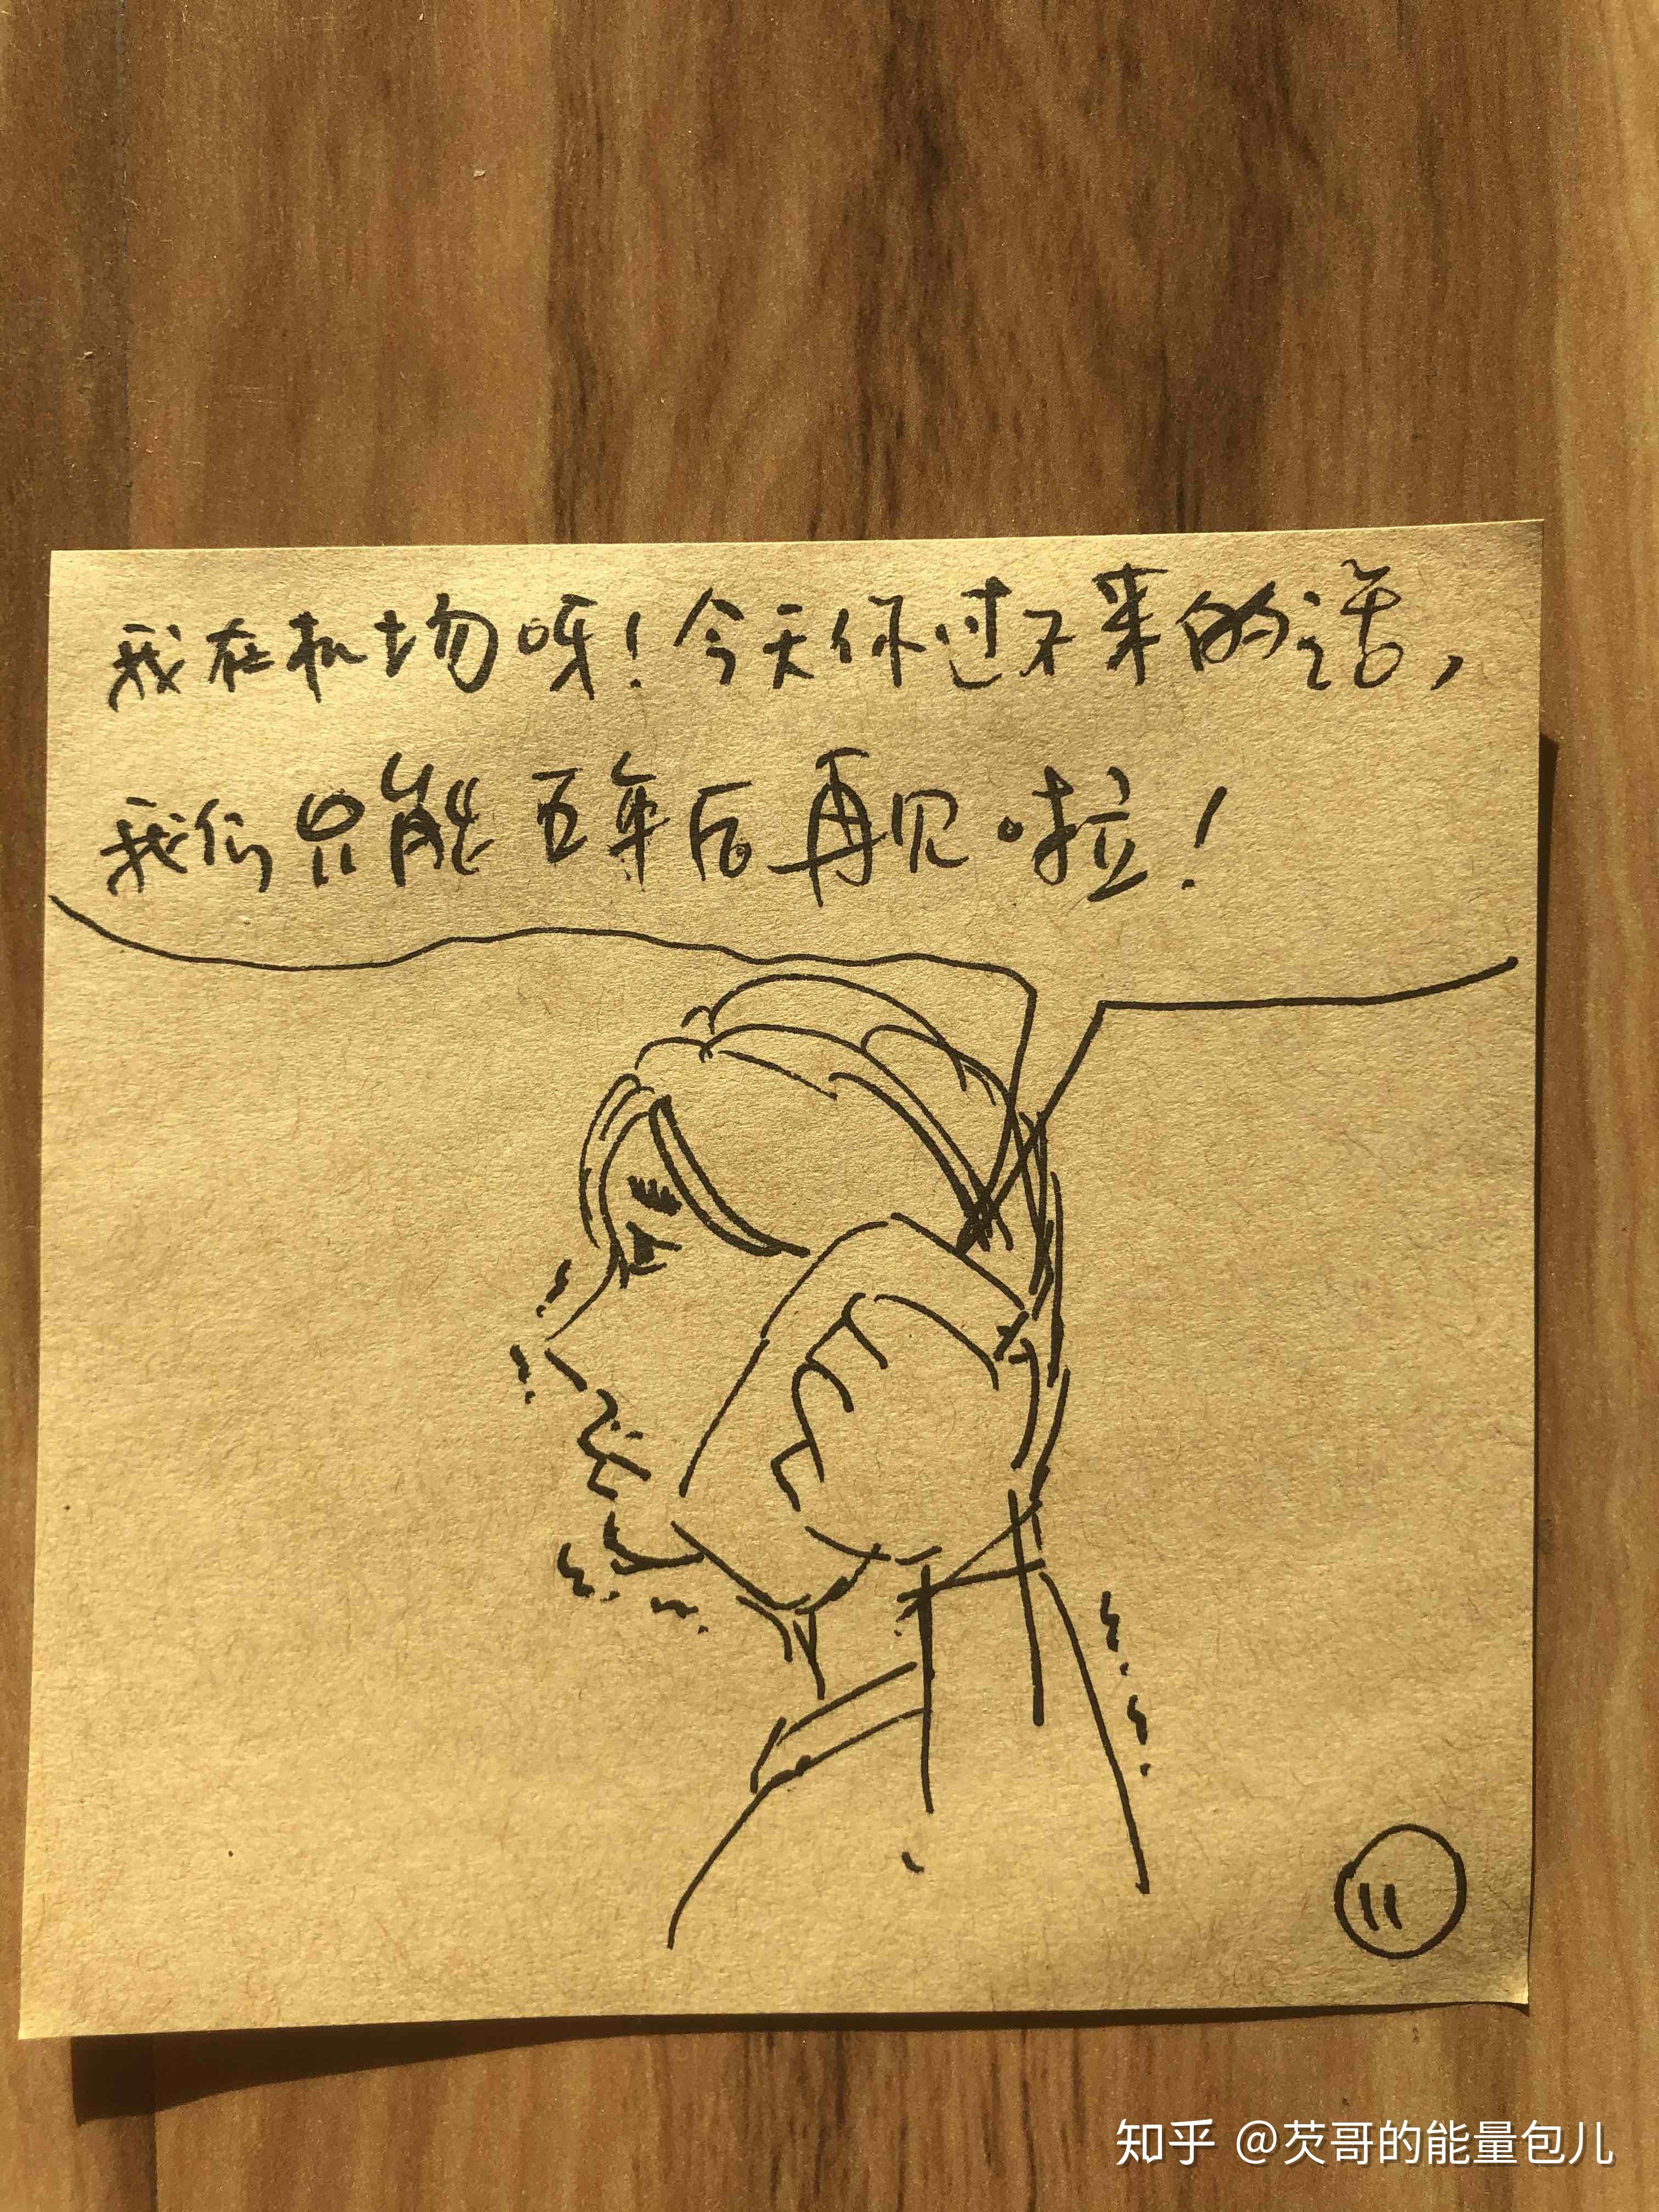 我在机场呀！今天你过不来的话，
我们只能五年后再见啦！
11
知乎 @芡哥的能量包儿